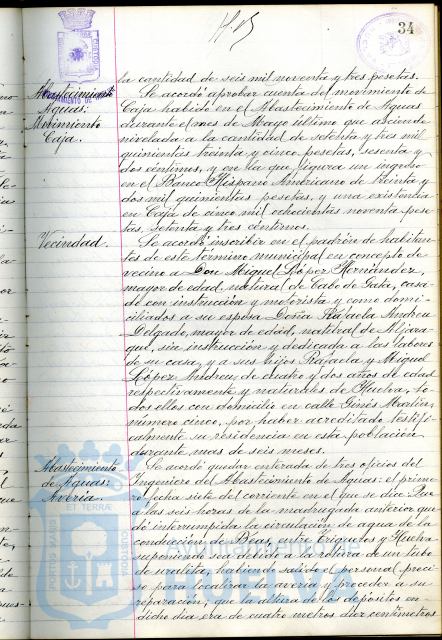 34
la cantidad de seis mil noventa y tres pesetas.
Abastecimiento
Aguas:
Movimiento
Caja.
Se acordó aprobar cuenta del movimiento de
Caja habido en el Abastecimiento de Aguas
durante el mes de Mayo último que asciende
nivelada a la cantidad de setenta y tres mil
quinientas treinta y cinco pesetas, sesenta y
dos céntimos, y en la que figura un ingreso
en el Banco Hispano Americano de treinta y
dos mil quinientas pesetas, y una existencia
en Caja de cinco mil ochocientas noventa pese-
tas, setenta y tres céntimos.
Vecindad.
Se acordó inscribir en el padrón de habitan-
tes de este término municipal en concepto de
vecino a Don Miguel López Hernández,
mayor de edad, natural de Cabo de Gata, casa-
do con instrucción y motorista y como domi-
ciliados a su esposa Doña Rafaela Andreu
Delgado, mayor de edad, natural de Aljara-
que, sin instrucción y dedicada a las labores
de su casa, y a sus hijos Rafaela y Miguel
López Andreu de cuatro y dos años de edad
respectivamente y naturales de Huelva, to-
dos ellos con domicilio en calle Ginés Martín,
número cinco, por haber acreditado testifi-
calmente su residencia en esta población
durante mas de seis meses.
Abastecimiento
de Aguas:
Avería.
Se acordó quedar enterada de tres oficios del
Ingeniero del Abastecimiento de Aguas: el prime-
ro fecha siete del corriente en el que se dice: Que
a las seis horas de la madrugada anterior que-
dó interrumpida la circulación de agua de la
conducción de Beas, entre Trigueros y Huelva
suponiendo sea debido a la rotura de un tubo
de uralita, habiendo salido el personal preci-
so para localizar la avería y proceder a su
reparación, que la altura de los depósitos en
dicho día era de cuatro metros diez centímetros